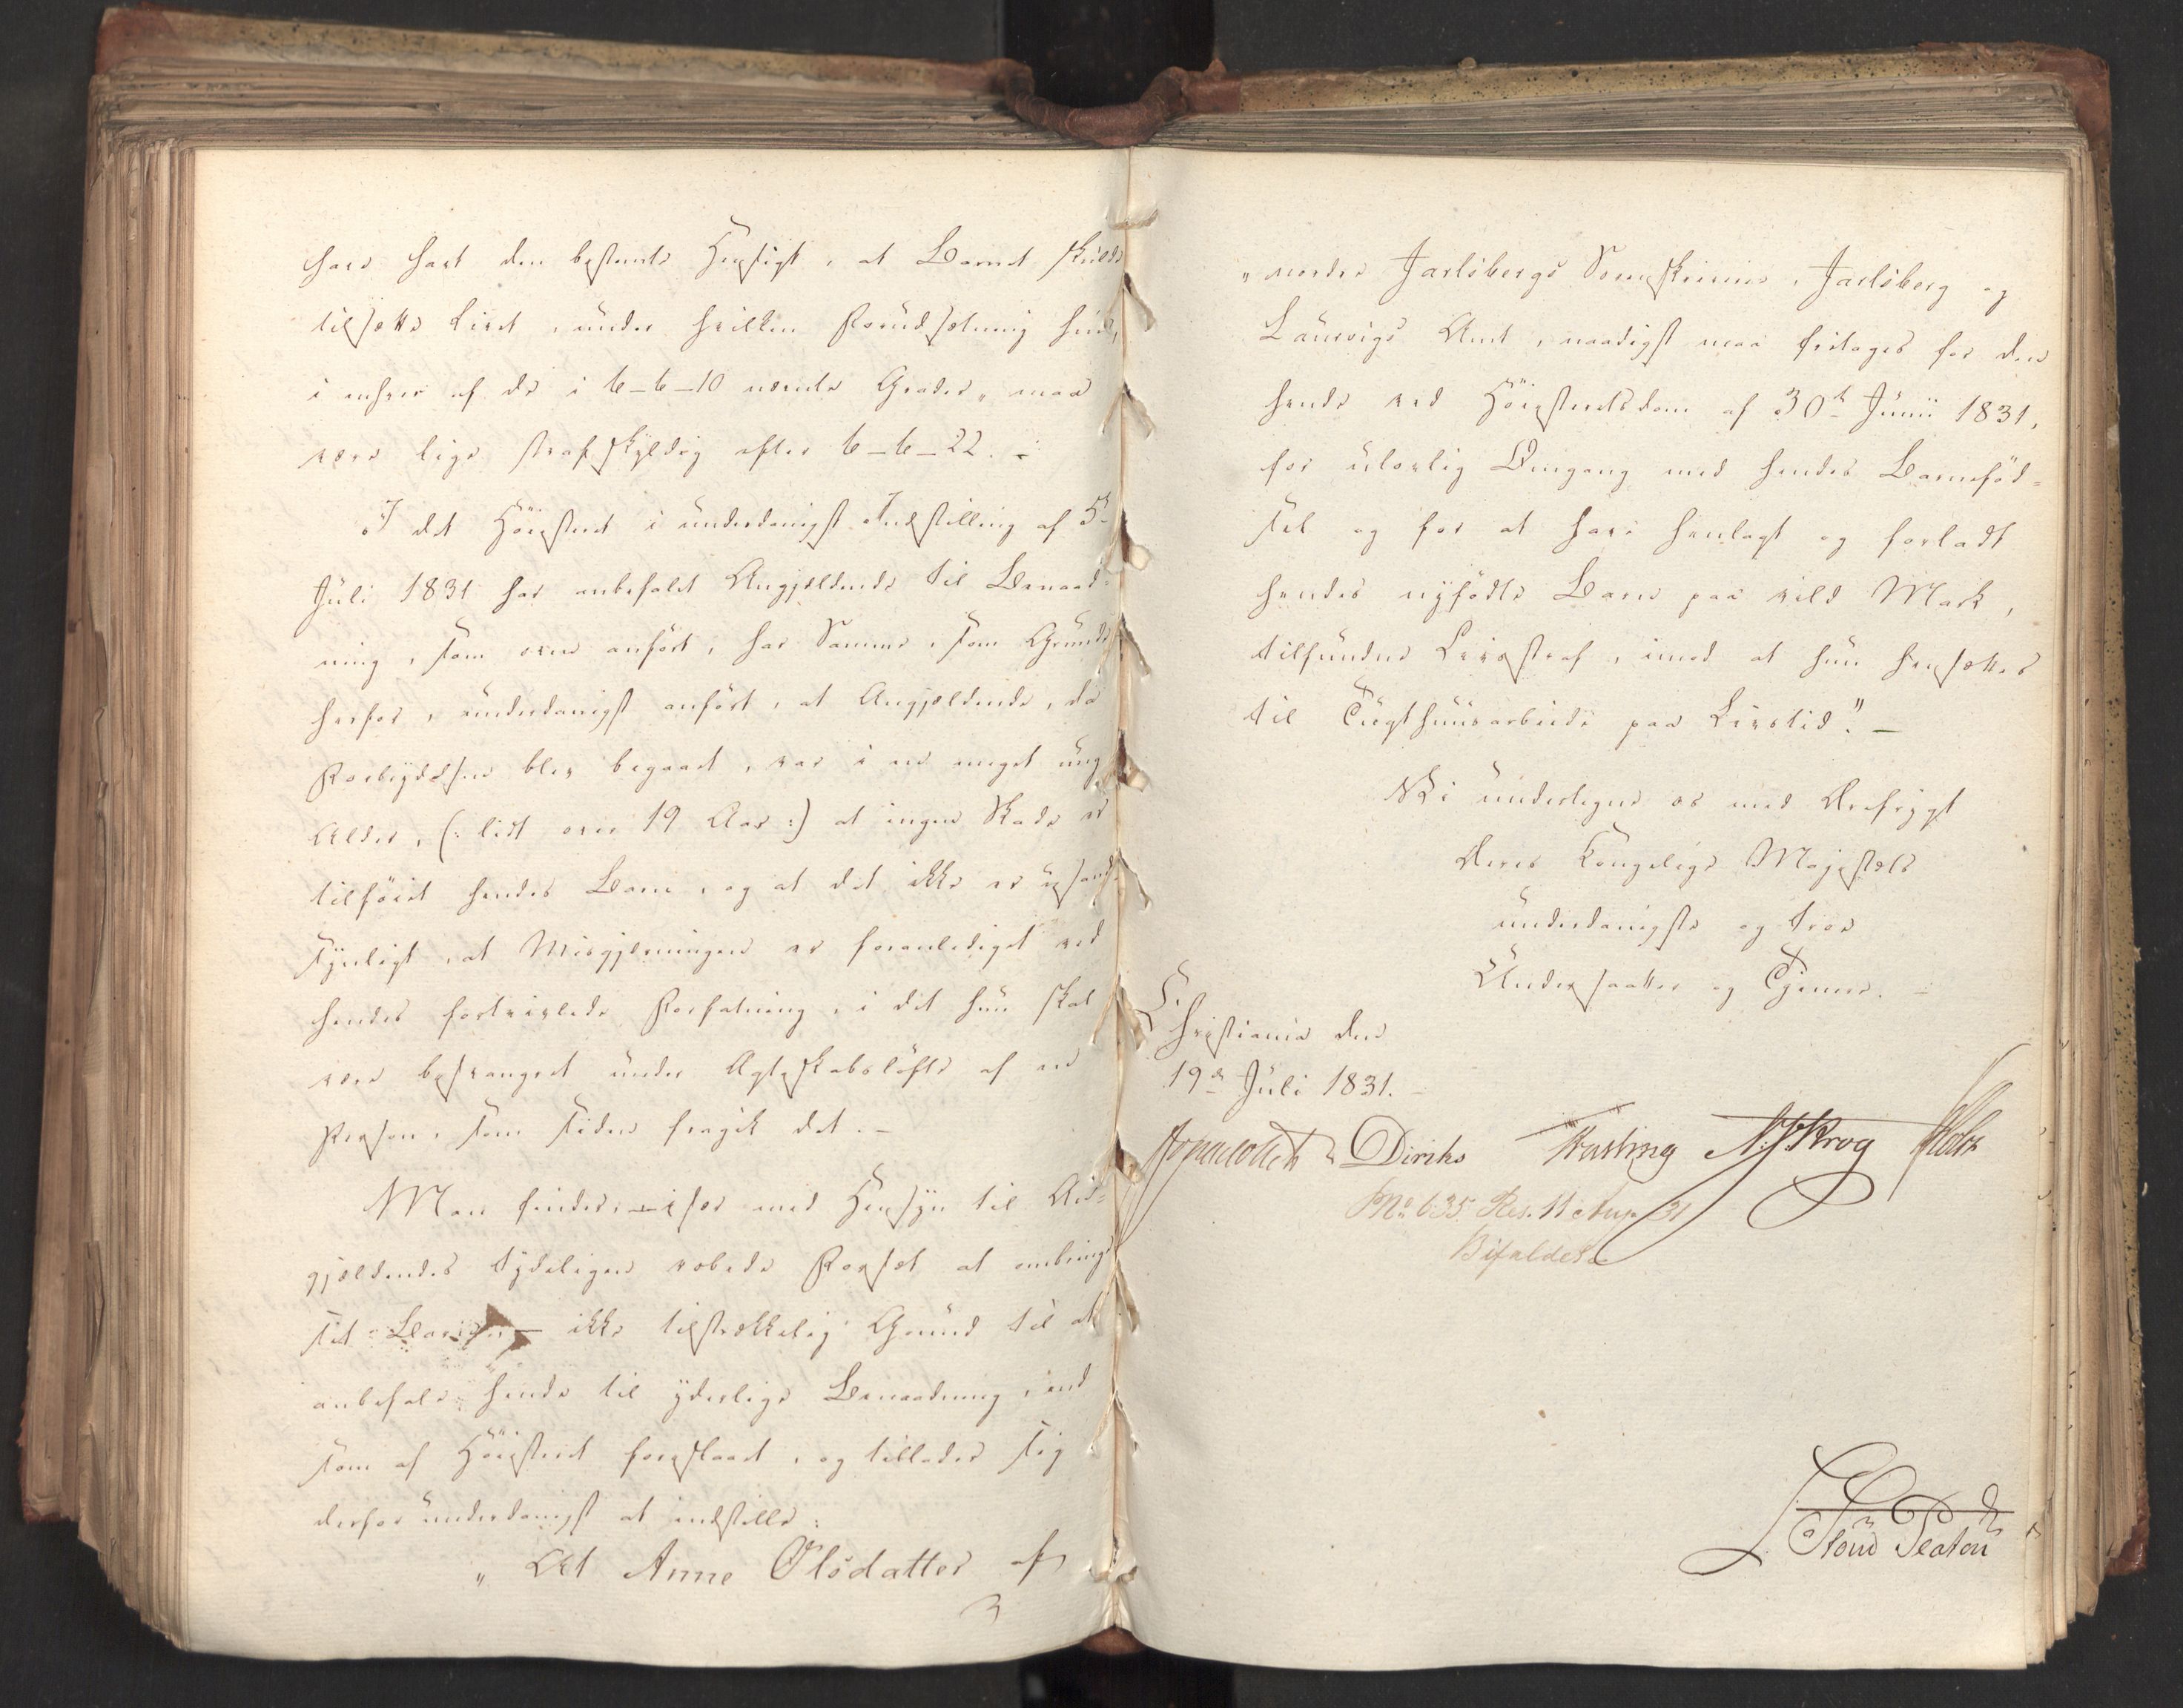 have havt den bestemte Hensigt, at Barnet skulde
tilsætte Livet, under hvilken Forudsætning hun,
i enhver af de i 6-6-10 nævnte Grader, maa
være lige strafskyldig efter 6-6-22. -
I det Høiesteret i underdanigst Indstilling af 5te
Juli 1831 har anbefalet Angjældende til Benaad-
ning, som oven anført, har Samme, som Grunde
herfor, underdanigst anført, at Angjældende, da
Forbrydelsen blev begaaet, var i en meget ung
Alder, (: lidt over 19 Aar :) at ingen Skade er
tilføiet hendes Barn, og at det ikke er usand-
synligt, at Misgjerningen er foranlediget ved
hendes fortvivlede Forfatning, i det hun skal
være besvangret under Ægteskabsløfte af en
Person, som siden fragik det. -
Man finder, - især med Hensyn til An-
gjældendes tydeligen røbede Forsæt at ombringe
sit Barn, - ikke tilstrækkelig Grund til at
anbefale hende til yderlige Benaadning, end
som af Høiesteret foreslaaet, og tillader sig
derfor underdanigst at indstille:
" At Anne Olsdatter af
" nordre Jarlsbergs Sorenskriverie, Jarlsberg og
Laurvigs Amt, naadigst maa fritages for den
hende ved Høiesteretsdom af 30te Junii 1831,
for ulovlig Omgang med hendes Barnefød-
sel og for at have henlagt og forladt
hendes nyfødte Barn paa vild Mark,
tilfundne Livsstraf, imod at hun hensættes
til Tugthuusarbeide paa Livstid." -
Vi undertegne os med Ærefrygt
Deres Kongelige Majestæts
underdanigste og troe
Undersaatter og Tjenere. -
Christiania den
19de Juli 1831. -
Jonas Collett Diriks Fasting N J Krog Holst
No 635 Res. 11 Aug. 31
Bifaldes